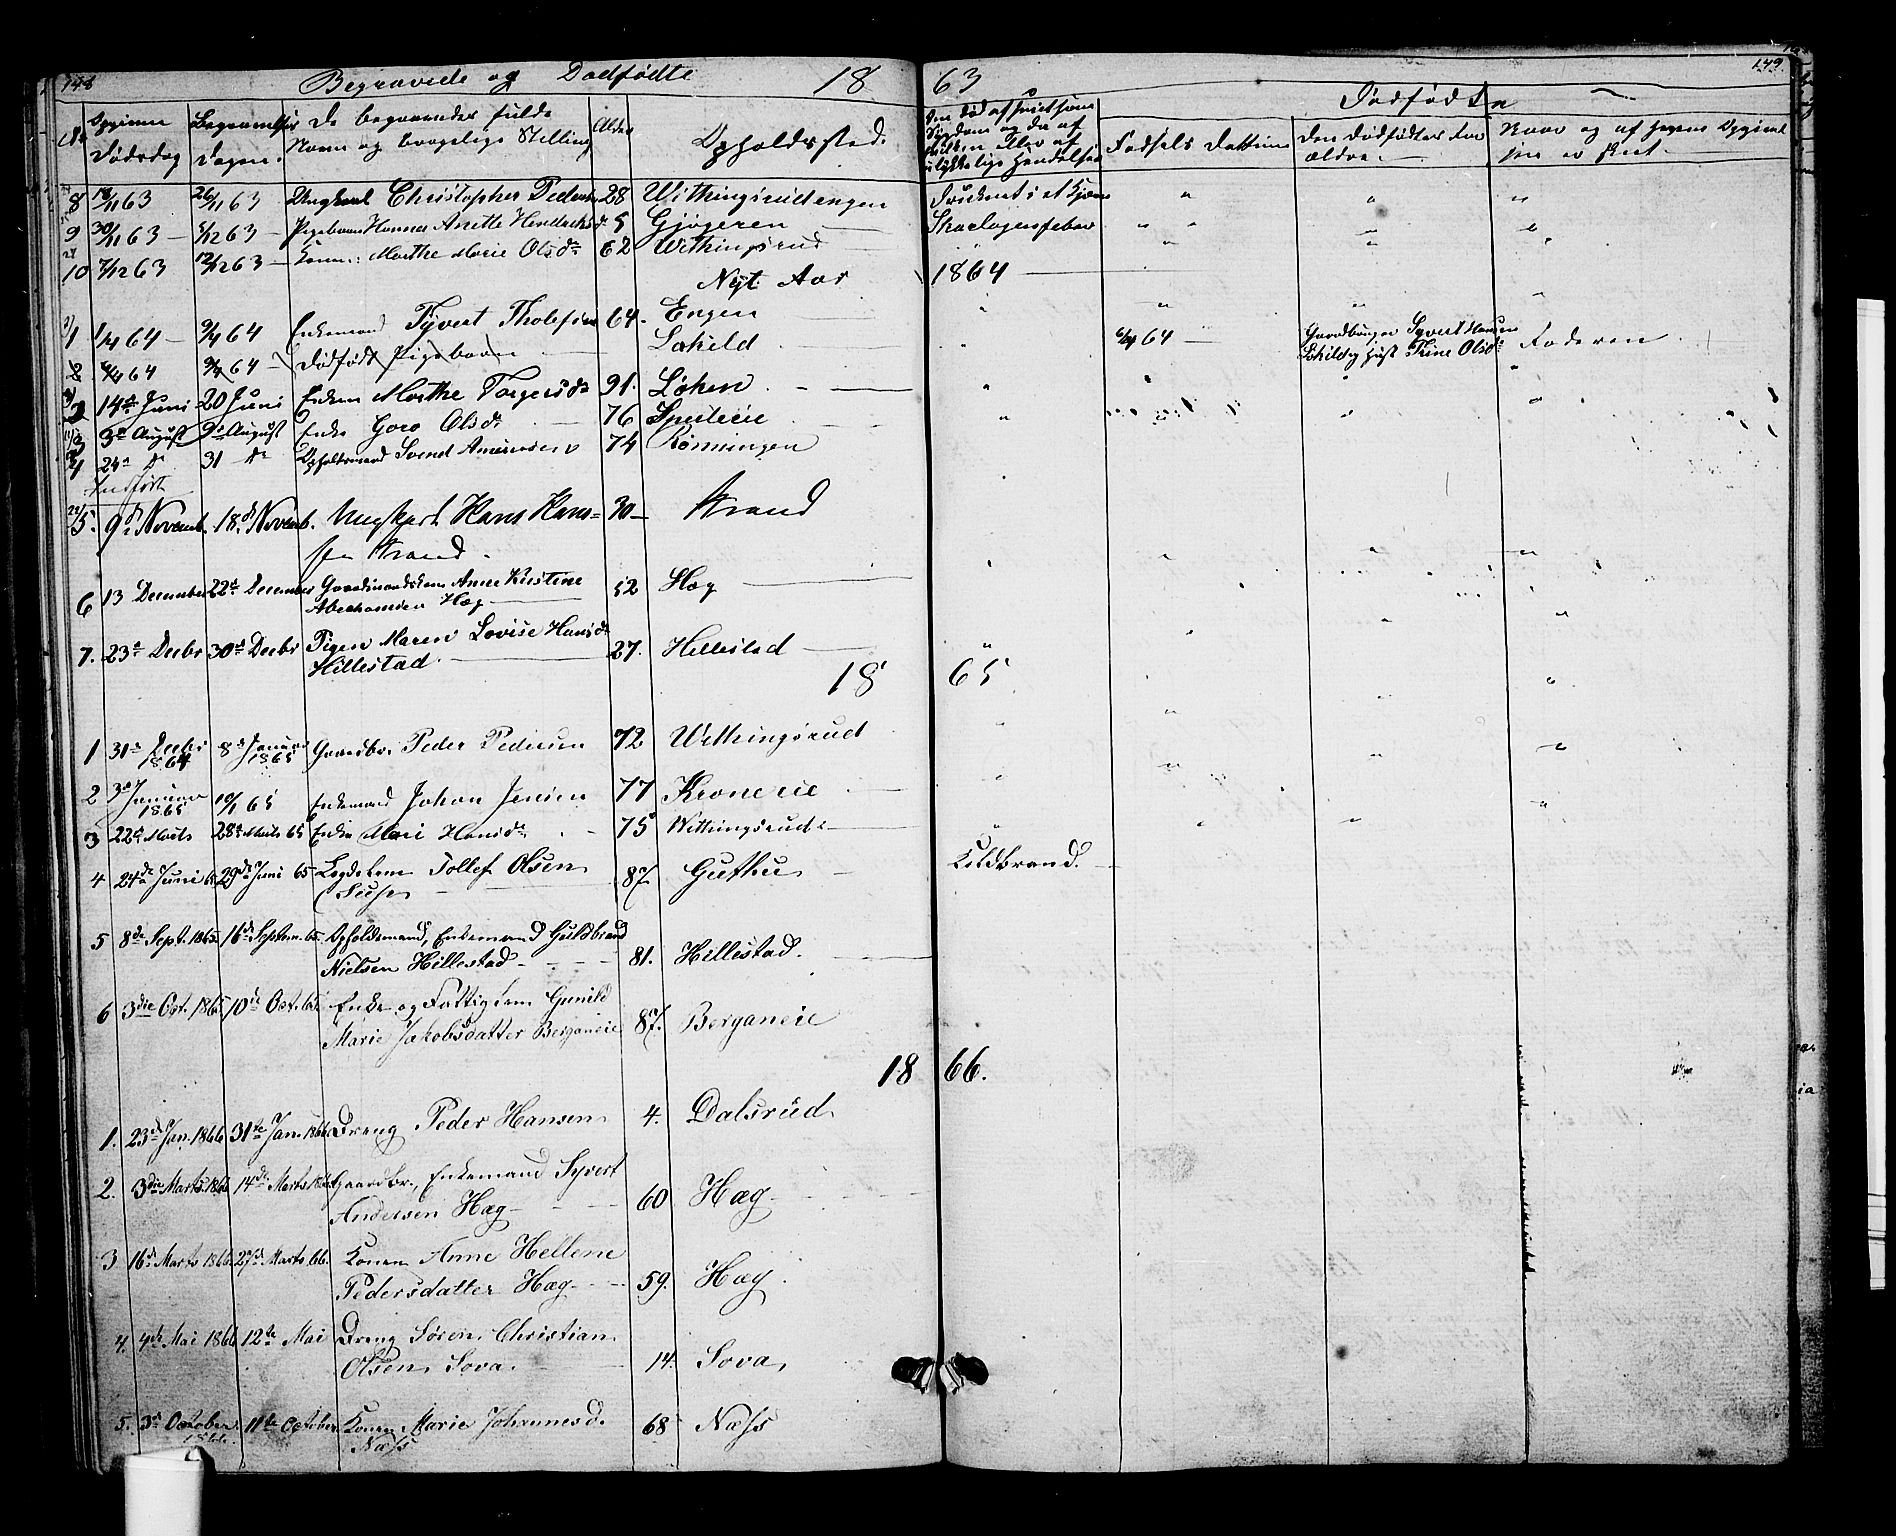 148 Begravede og Dødfødte 18 63 149
No Opgiven Dødsdag Begravelses Dagen De begravedes fulde Navn og borgerlige Stilling Alder Opholdssted. Dødfødte
Fødsels Datum Den Dødfødtes Forældre
8 63 26/11 63 Ungkarl Christopher Peders 28 Withingsrudengen
9 30/11 63 5/12 63 Pigebarn Hanna Anette Hendriksd. 5 Gjøgeren Skarlagensfeber
10 7/12 63 12/12 63 Kone: Marthe Marie Olsdr 62 Withingsrud
Nyt Aar 1864
1 1/4 64 9/4 64 Enkemand Syvert Tholefsen 64. Engen
2. 4/4 64 9/4 64 Dødfødt Pigebarn Løkild 4/4 64 Gaardbruger Syvert Hansen
Løkild og Hust. Trine Olsdr Faderen
2 14de Juni 20 Juni Enken Marthe Torgersdr 91. Løken
3 3de August 9de August Enke Goro Olsdr 76 Speterie
4 24de Dr 31 Dr Opholdsmand Svend Amundsen 74 Rønningen
Indført
5. 9de Novemb. 18de Novemb. Ungkarl Hans Hans= 30 Strand
sen Strand.
6 13 December 22de December Gaardmandskone Anne Kirstine
Abrahamsen Hæg 52 Hæg
7. 23de Decbr 30de Decbr Pigen Maren Lovise Hansdr
Hillestad. 27. Hillestad
18 65
1 31te Decbr 1864 8de Januar 1865 Gaardbr. Peder Pedersen 72 Withingsrud
2 3de Januar 1865 10/1 65 Enkemand Johan Jensen 77 Kronerie
3 22de Marts 28de Marts 65 Enke Mari Hansdr 75 Withingsrud
4 24de Juni 65 29de Juni 65 Lægdslem Tollef Olsen 87 Guthu Koldbrand.
5 8de Sept. 1865 16de Septem. 65. Opholdsmand, Enkemand Guldbrand
Nielsen Hillestad 81. Hillestad.
6 3die Oct. 1865. 10de Oct. 65. Enke og Fattiglem Gunild
Marie Jakobsdatter Berganeie 87. Berganeie
18 66.
1. 23de Jan. 1866 31te Jan. 1866 Dreng Peder Hansen 4. Dalsrud
2. 3die Marts 1866 14de Marts 1866 Gaardbr., Enkemand Syvert
Andersen Hæg 60 Hæg
3 16de Marts 1866. 27de Marts 66. Konen Anne Hellene
Pedersdatter Hæg 59. Hæg.
4. 4de Mai 1866 12te Mai Dreng Søren Christian
Olsen Sova. 14. Sova
5. 3de October 1866. 11te October Konen Marie Johannesd.
Næss 68 Næss